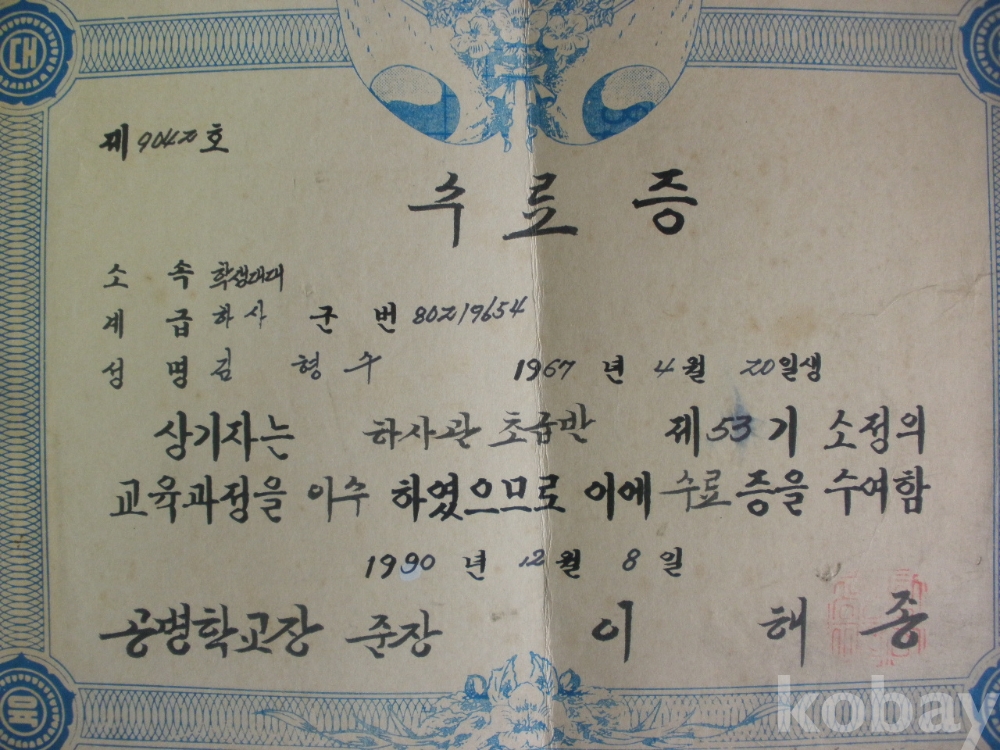 대
제 9042 호
수료증
소 속 학생대대
계 급 하사 군 번 80219654
성 명 김 형 수 1967 년 4 월 20 일생
상기자는 하사관 초급반 제 53 기 소정의
교육과정을 이수 하였으므로 이에 수료 증을 수여함
1990 년 12 월 8 일
공병학교장 준장 이 해 종
kobay